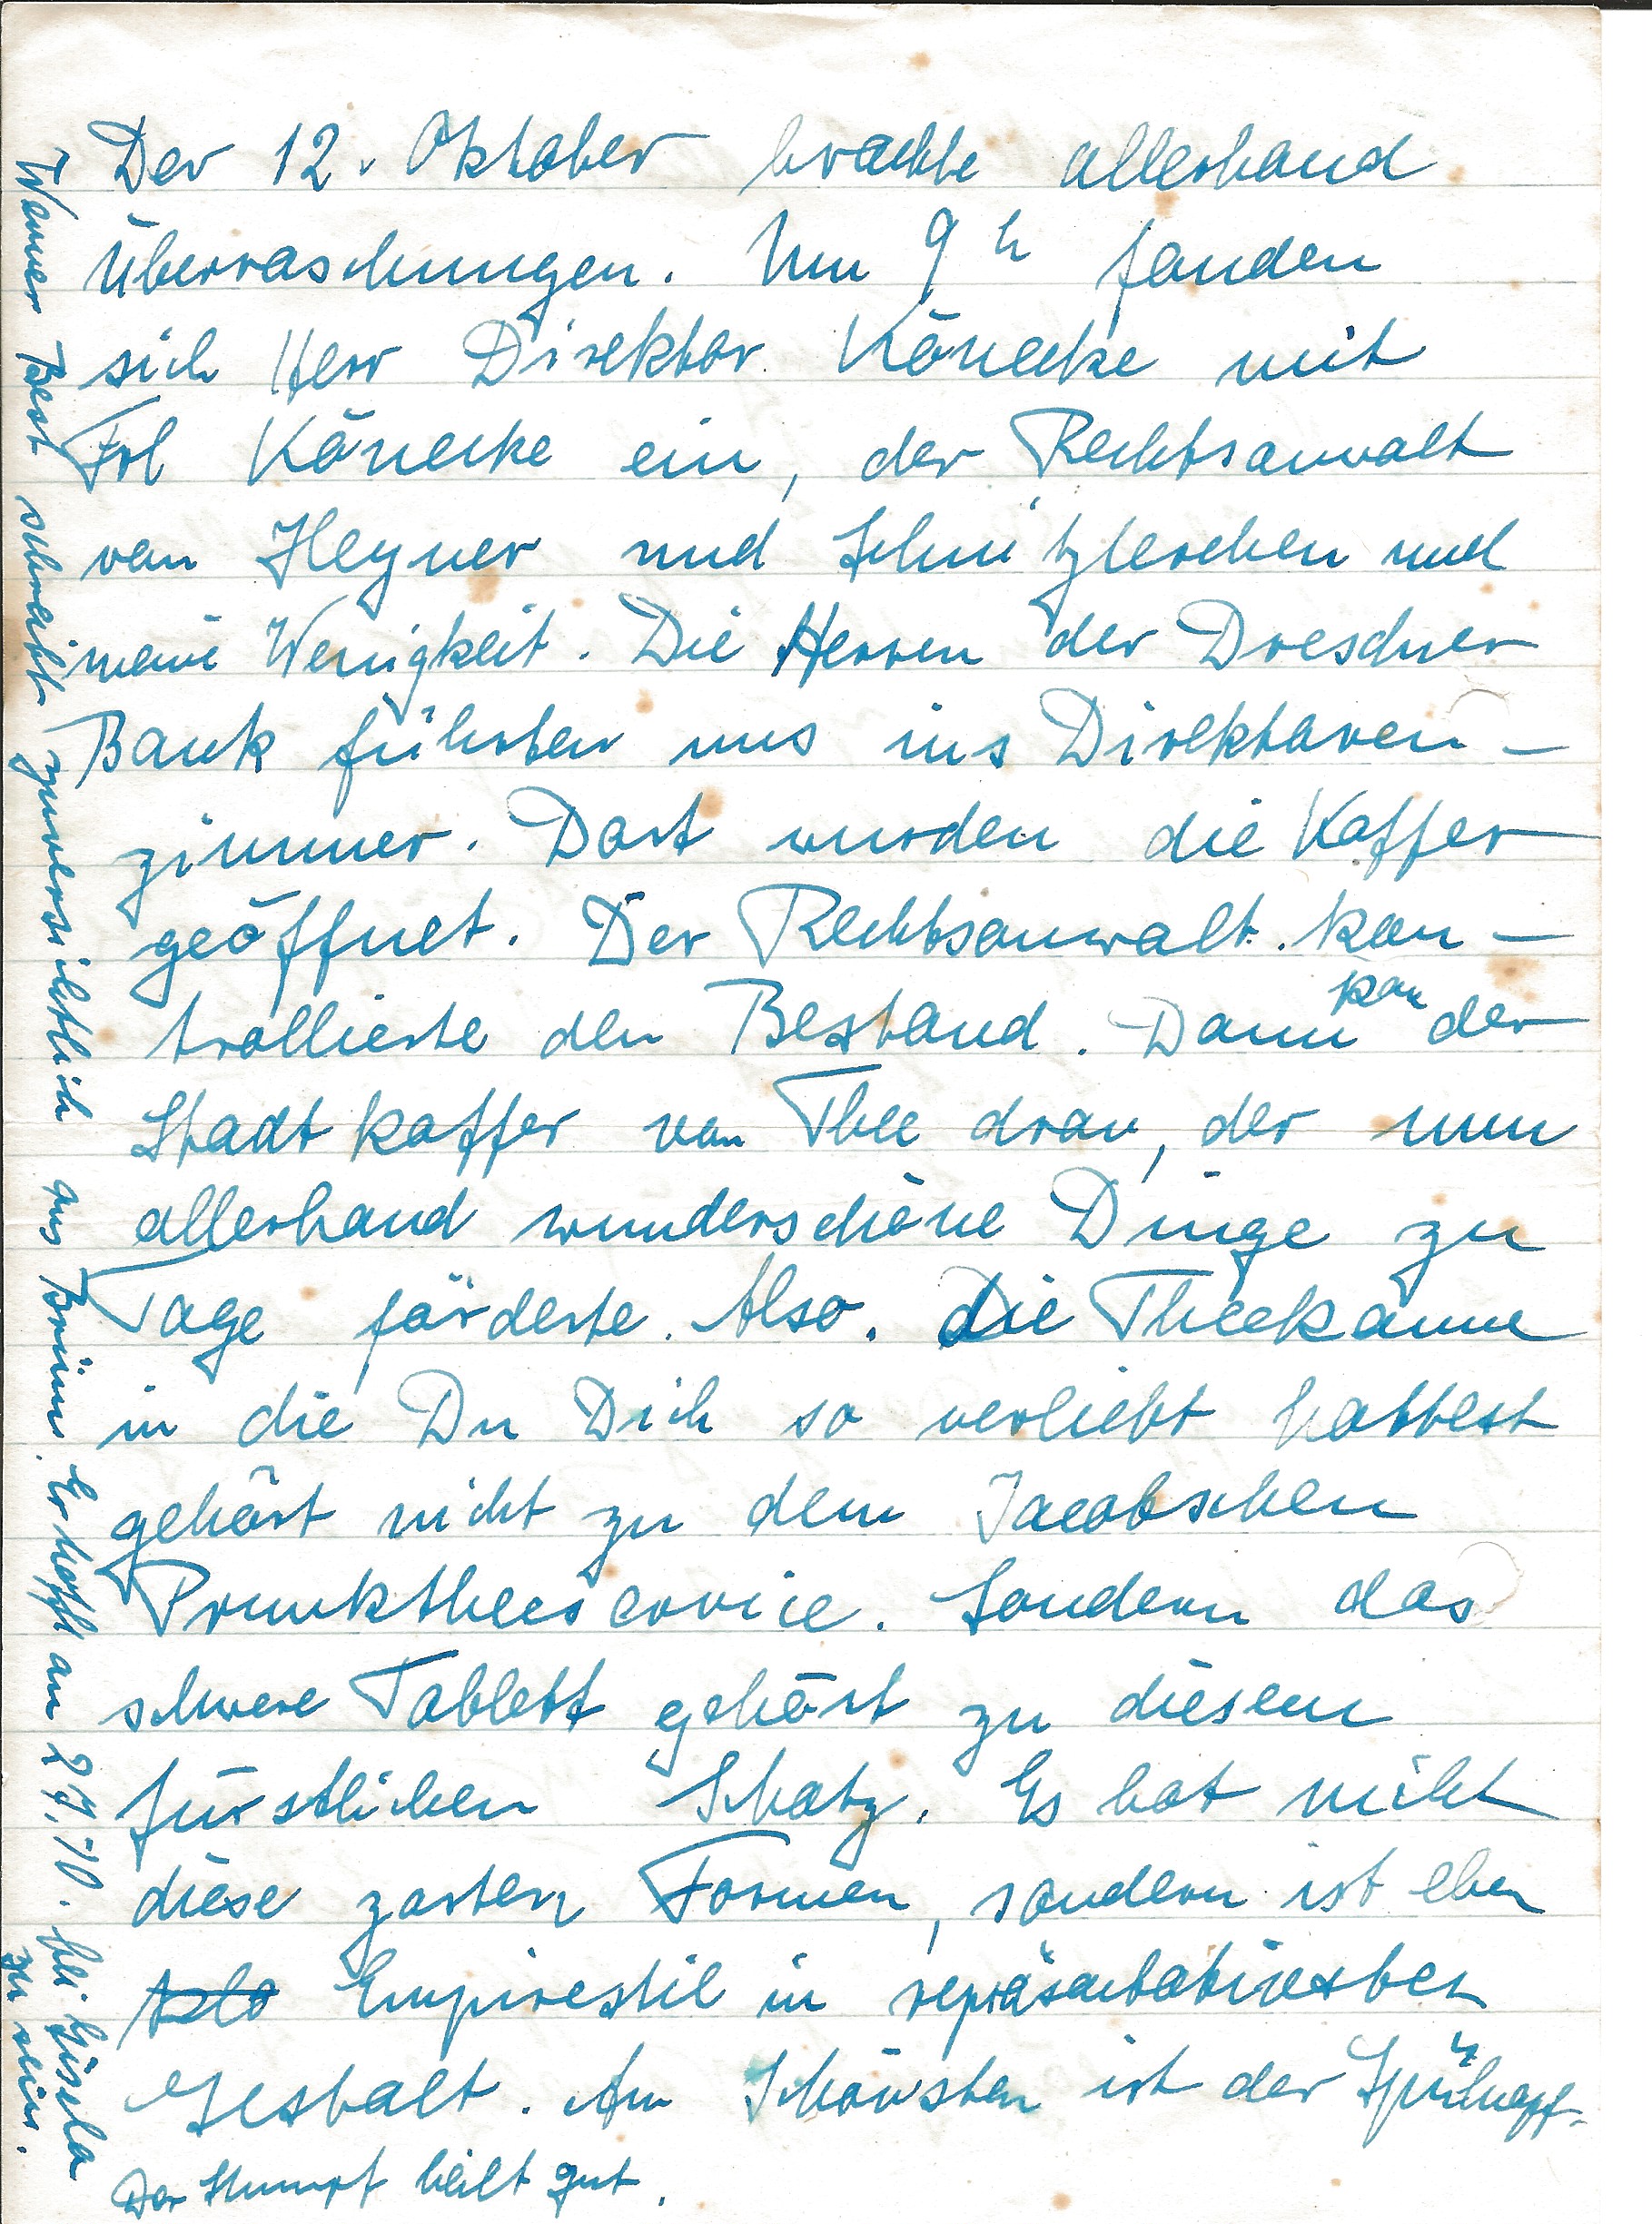 Der 12. Oktober brachte allerhand
Überraschungen. Um 9 h fanden
sich Herr Direktor Könecke mit
Frl Könecke ein, der Rechtsanwalt
von Heyner und Schnitzlerchen und
meine Wenigkeit. Die Herren der Dresdner
Bank führten uns ins Direktoren-
zimmer. Dort wurden die Koffer
geöffnet. Der Rechtsanwalt kon-
trollierte den Bestand. Dann kam der
Stadtkoffer von Thee dran, der nun
allerhand wunderschöne Dinge zu
Tage förderte. Also. Die Theekanne
in die Du Dich so verliebt hattest
gehört nicht zu dem Jacobschen
Prunktheeservice. Sondern das
schwere Tablett gehört zu diesem
fürstlichen Schatz. Es hat nicht
diese zarten Formen, sondern ist eben
Empirestil in repräsentativster
Gestalt. Am Schönsten ist der Spülnapf.
Der Stumpf heilt gut.
Werner Best schreibt zuversichtlich aus Brünn. Er hofft am 27.10. bei Gisela
zu sein.